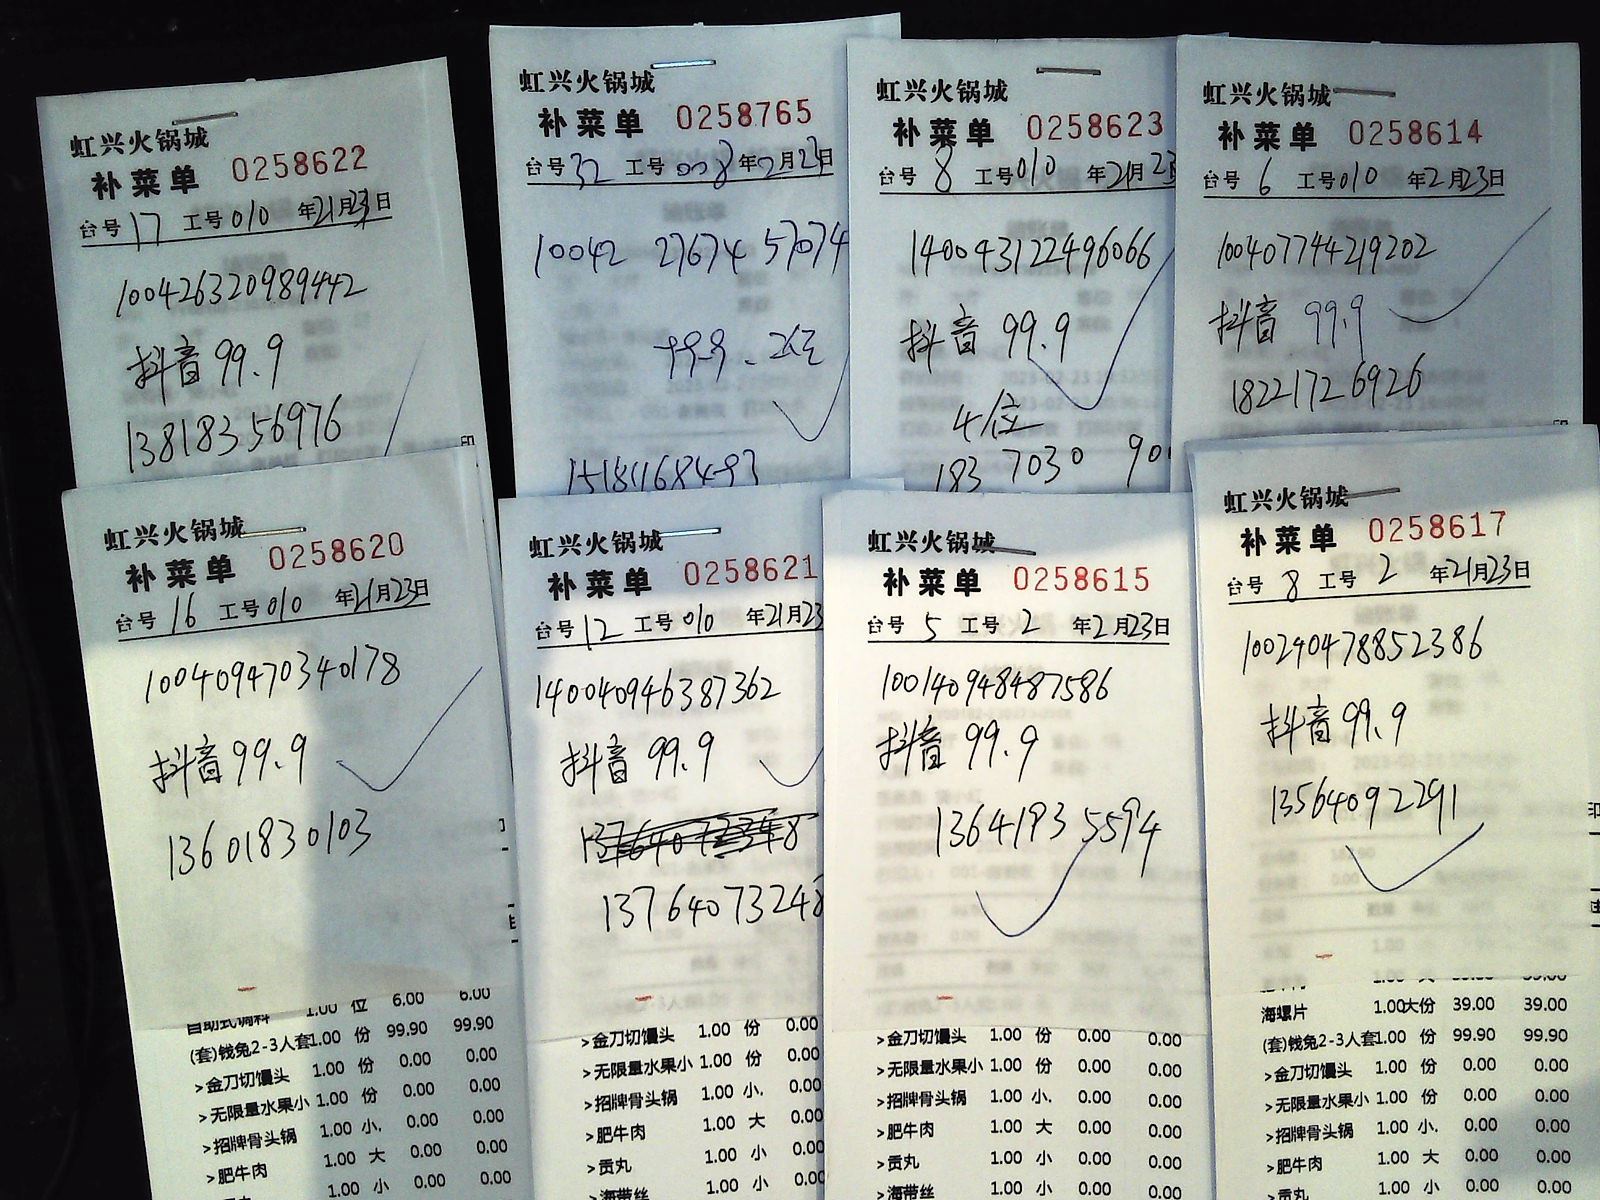 虹兴火锅城
补菜单 0258622
台号 17 工号 010 年 2月23日
100426320989442
抖音 99.9
13818356976
虹兴火锅城
补菜单 0258765
台号 32 工号 008 年 2月23日
10042 27674 57074
99.9.
15181168493
虹兴火锅城
补菜单 0258623
台号 8 工号 010 年 2月23
140043122496066
抖音 99.9
4位
183 7030 90
虹兴火锅城
补菜单 0258614
台号 6 工号 010 年 2月23日
100407744219202
抖音 99.9
18221726926
虹兴火锅城
补菜单 0258620
台号 16 工号 010 年 2月23日
100409470340178
抖音 99.9
13601830103
自助式调料 1.00 位 6.00 6.00
(套)钱兔2-3人套 1.00 份 99.90 99.90
>金刀切馒头 1.00 份 0.00 0.00
>无限量水果小 1.00 份 0.00 0.00
>招牌骨头锅 1.00 小. 0.00 0.00
>肥牛肉 1.00 大 0.00 0.00
1.00 小 0.00 0.00
虹兴火锅城
补菜单 0258621
台号 12 工号 010 年 2月23
140040946387362
抖音 99.9
13764073248
>金刀切馒头 1.00 份 0.00
>无限量水果小 1.00 份 0.00
>招牌骨头锅 1.00 小. 0.00
>肥牛肉 1.00 大 0.00
>贡丸 1.00 小 0.00
>海带丝 1.00 小 0.00
虹兴火锅城
补菜单 0258615
台号 5 工号 2 年 2月23日
100140948487586
抖音 99.9
13641935594
>金刀切馒头 1.00 份 0.00 0.00
>无限量水果小 1.00 份 0.00 0.00
>招牌骨头锅 1.00 小. 0.00 0.00
>肥牛肉 1.00 大 0.00 0.00
>贡丸 1.00 小 0.00 0.00
>海带丝 1.00 小 0.00 0.00
虹兴火锅城
补菜单 0258617
台号 8 工号 2 年 2月23日
100290478852386
抖音 99.9
13564092291
海螺片 1.00大份 39.00 39.00
(套)钱兔2-3人套 1.00 份 99.90 99.90
>金刀切馒头 1.00 份 0.00 0.00
>无限量水果小 1.00 份 0.00 0.00
>招牌骨头锅 1.00 小. 0.00 0.00
>肥牛肉 1.00 大 0.00 0.00
>贡丸 1.00 小 0.00 0.00